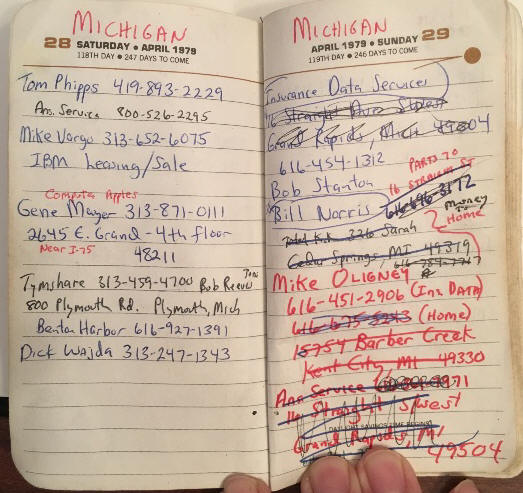 MICHIGAN
28 SATURDAY • APRIL 1979
118TH DAY • 247 DAYS TO COME
Tom Phipps 419-893-2229
Ans. Service 800-526-2295
Mike Vargo 313-652-6075
IBM Leasing/Sale
Computer Apples
Gene Mayer 313-871-0111
2645 E. Grand - 4th floor
Near I-75 48211
Tymshare 313-459-4700 Bob Reeves
800 Plymouth Rd. Plymouth, Mich
Benton Harbor 616-927-1391
Dick Wajda 313-247-1343
MICHIGAN
APRIL 1979 • SUNDAY 29
119TH DAY • 246 DAYS TO COME
Insurance Data Services
16 Straight
Grand Rapids, Mich 49504
616-454-1312
PARTS TO
Bob Stanton 16 STRAIGHT ST
Bill Norris 616-696-3172
Home
326 Sarah
Cedar Springs, MI 49319
Mike OLIGNEY
616-451-2906 (Ins. DATA)
616-675-5243 (Home)
15754 Barber Creek
Kent City, MI 49330
Ann Service
16 Straight S/West
Grand Rapids, MI
49504